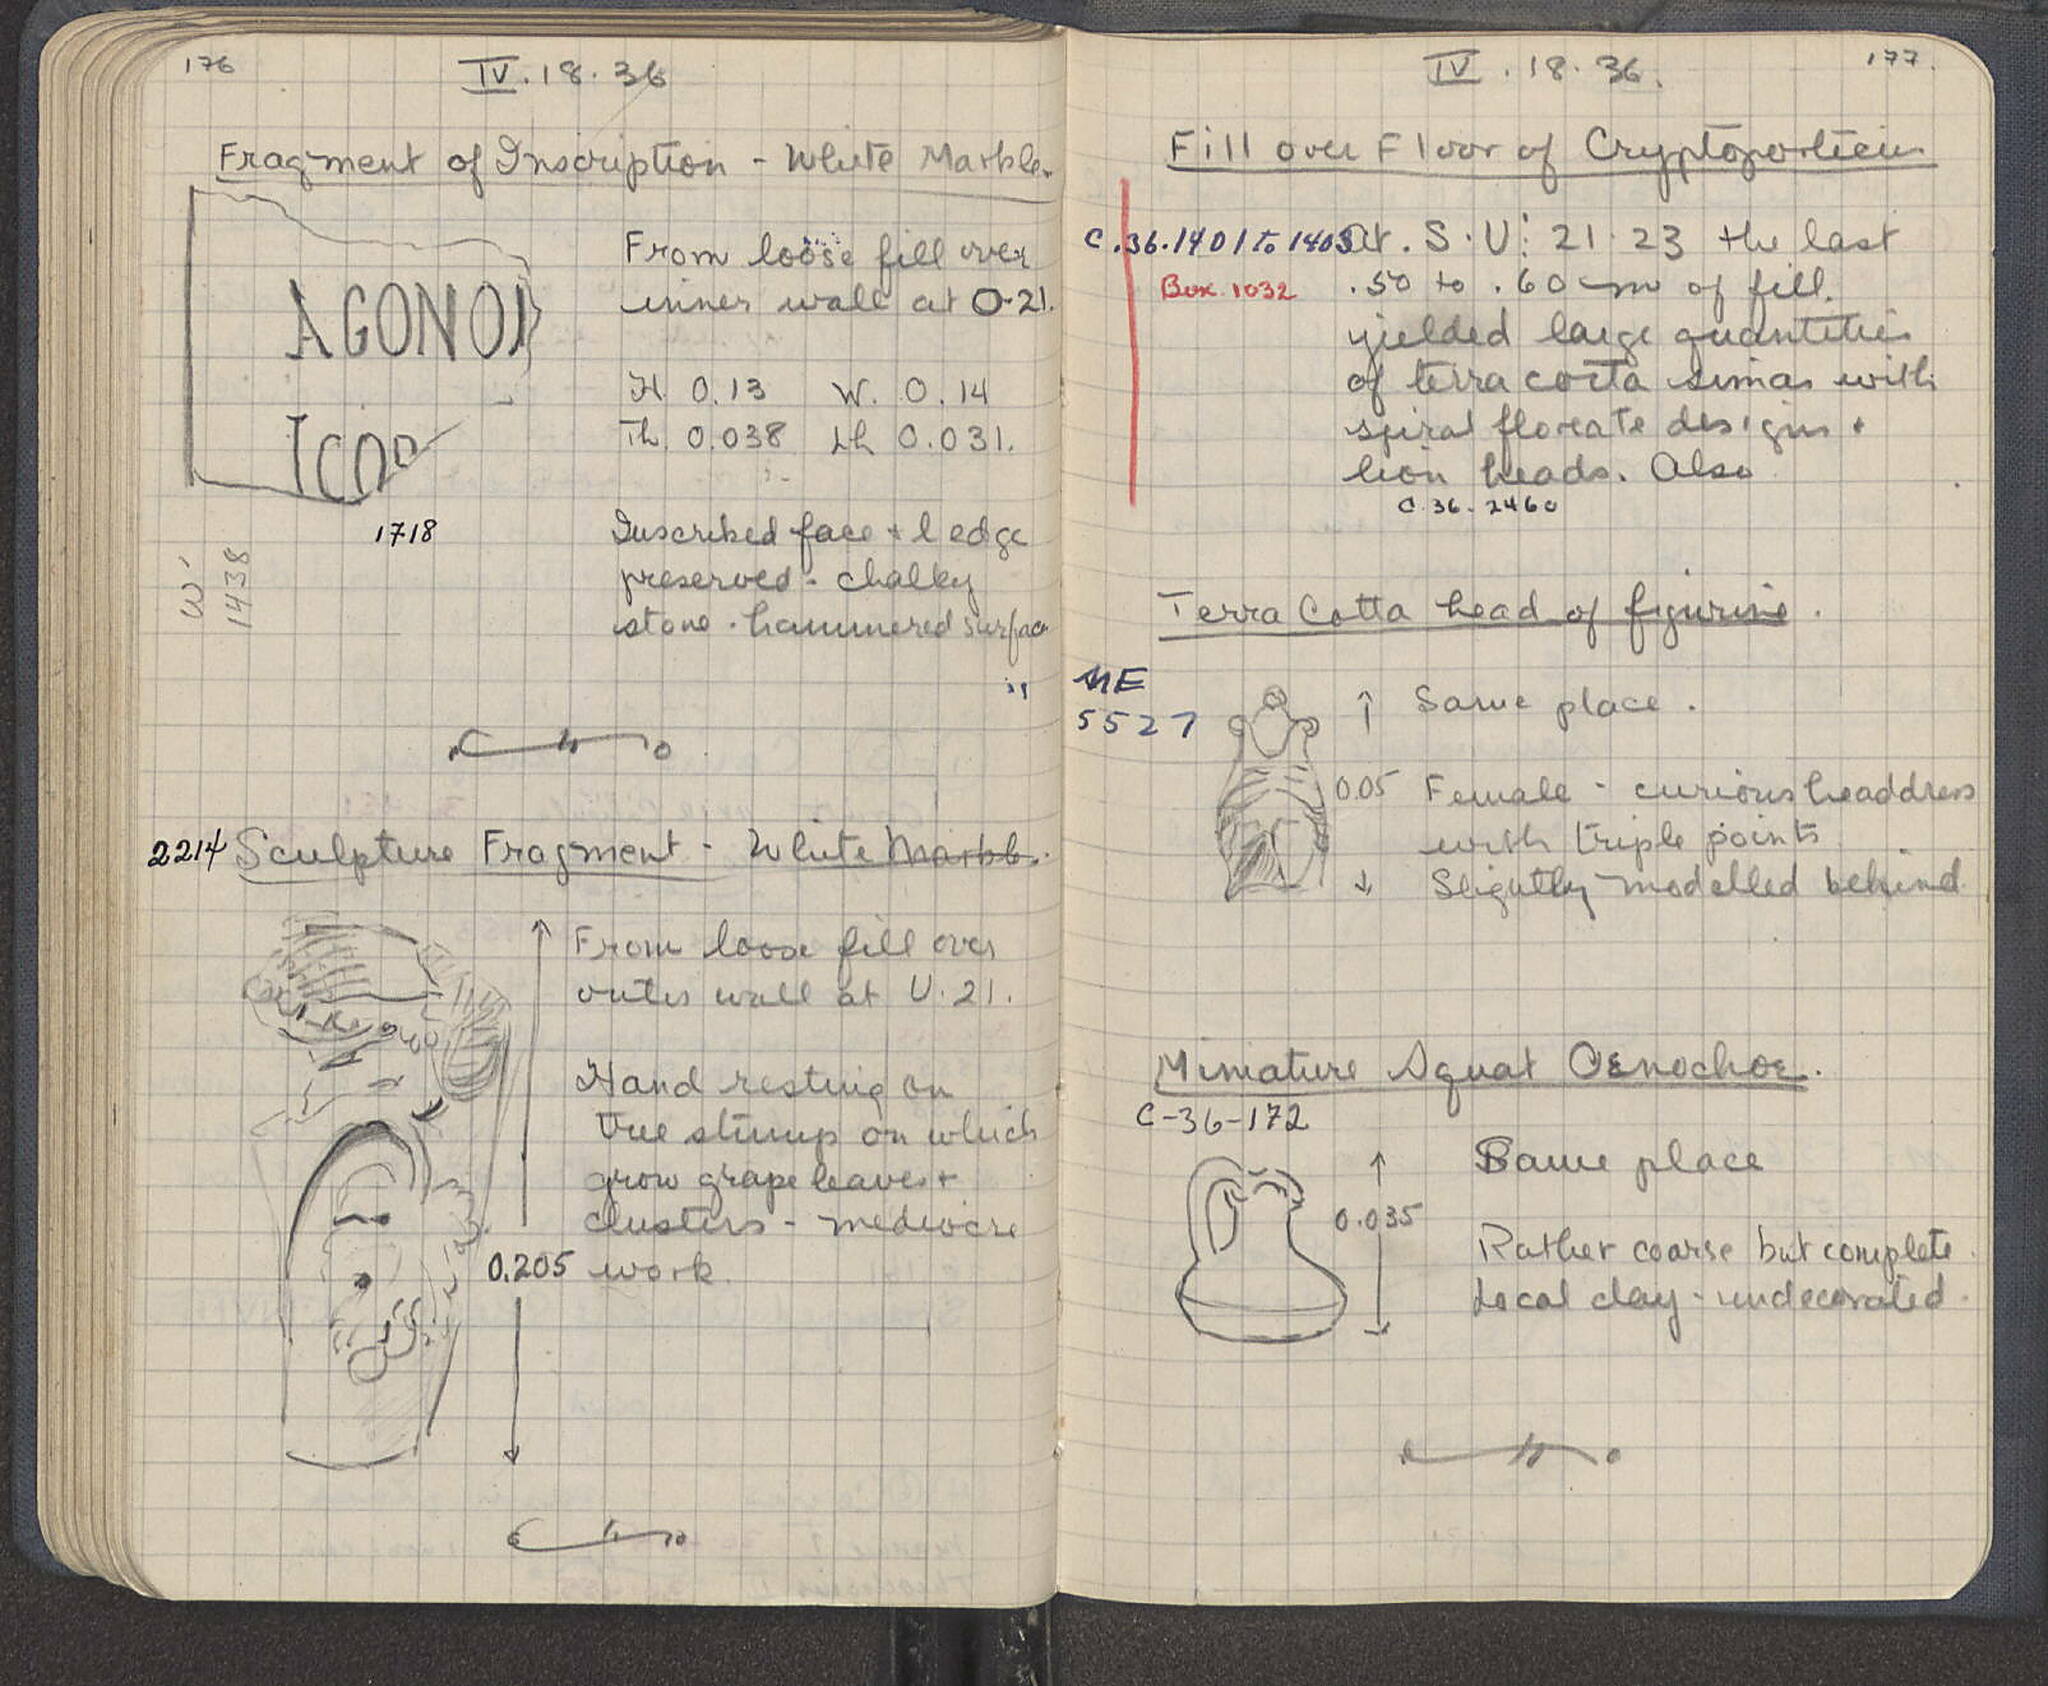 176
IV. 18. 36
Fragment of Inscription - White Marble.
From loose fill over
inner wall at O-21.
AGONOI
H 0.13 W. 0.14
Th. 0.038 Lh 0.031.
1718
Inscribed face + l edge
preserved - chalky
stone - hammered surface
W'
1438
2214 Sculpture Fragment - White Marble.
From loose fill over
outer wall at U. 21.
Hand resting on
tree stump on which
grow grape leaves +
clusters - mediocre
0.205 work.
IV. 18. 36.
177.
Fill over Floor of Cryptoporticus
C.36.1401 to 1403 At. S.U: 21-23 the last
Box 1032 .50 to .60 cm of fill
yielded large quantities
of terra cotta simas with
spiral floreate designs +
lion heads. Also
C.36-2460
Terra Cotta head of figurine.
5527
Same place.
0.05 Female - curious headdress
with triple points
Slightly modelled behind
Miniature Squat Oenochoe.
C-36-172
Same place
0.035
Rather coarse but complete.
Local clay - undecorated.